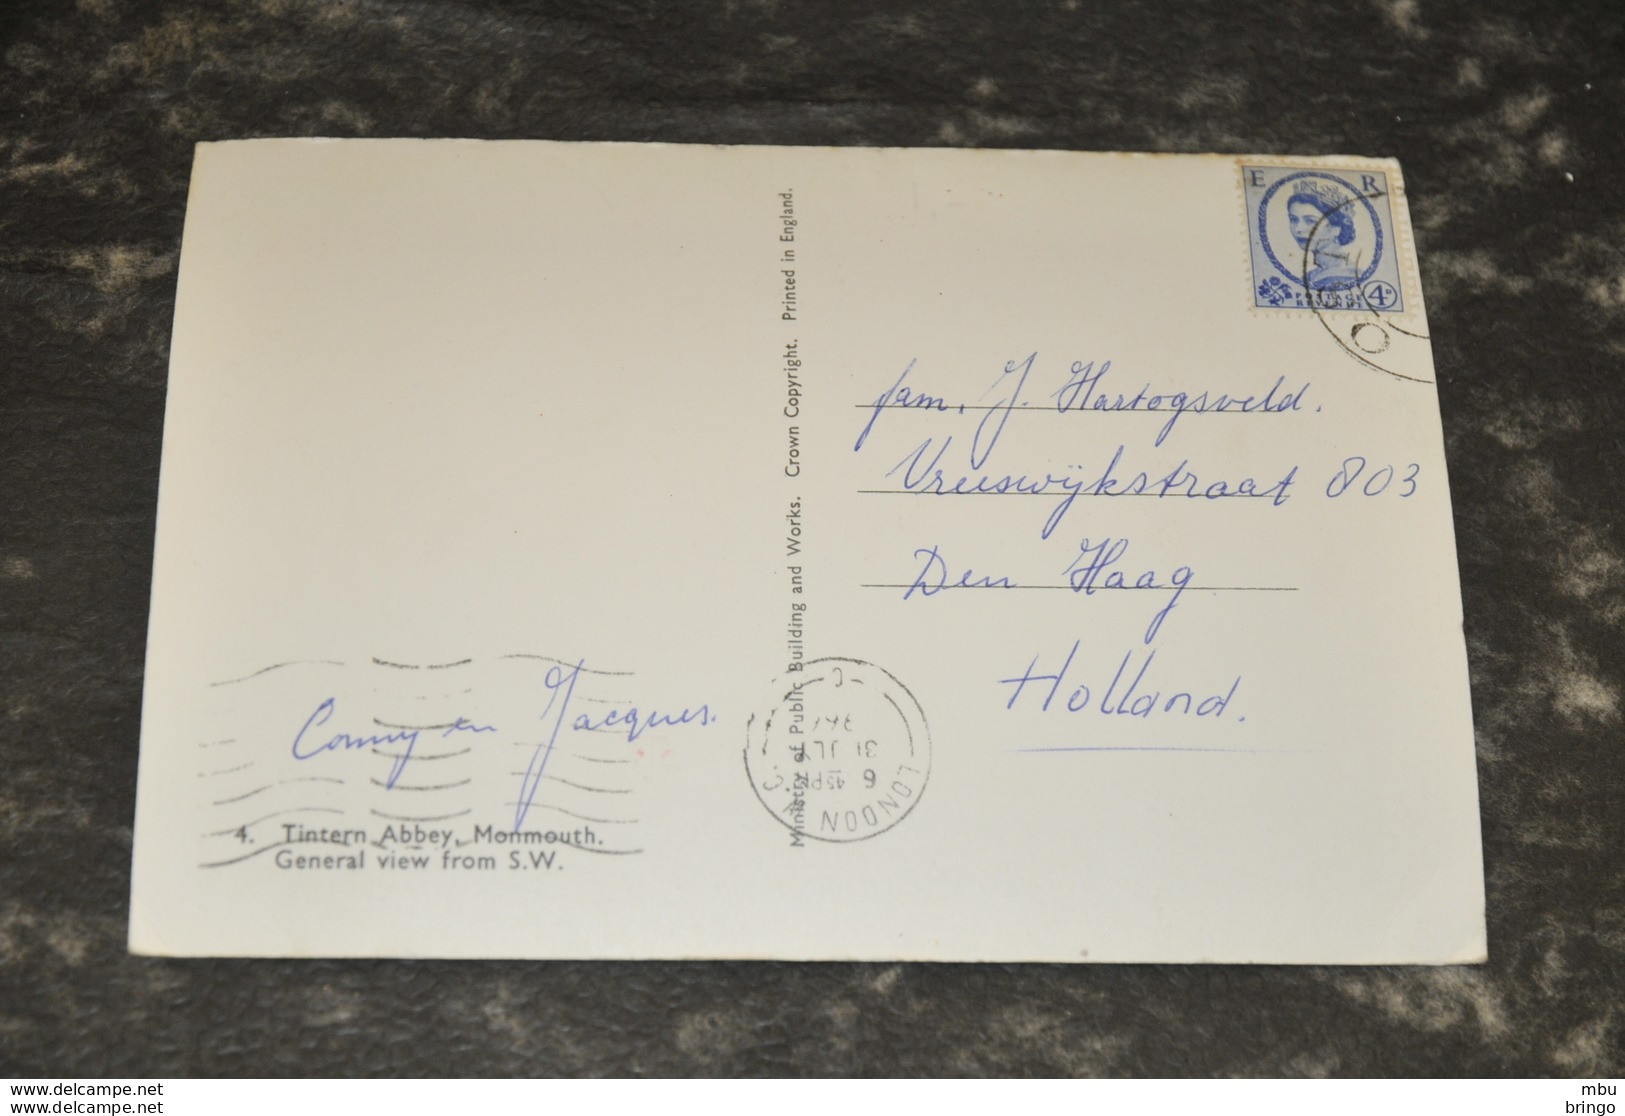 E R
POSTAGE
REVENUE
4D
fam. J. Hartogsveld.
Vreeswijkstraat 803
Den Haag
Holland.
Conny en Jacques.
4. Tintern Abbey, Monmouth.
General view from S.W.
Ministry of Public Building and Works. Crown Copyright. Printed in England.
LONDON
6 45PM
31 JLY
C
www.delcampe.net
www.delcampe.net
mbu
bringo